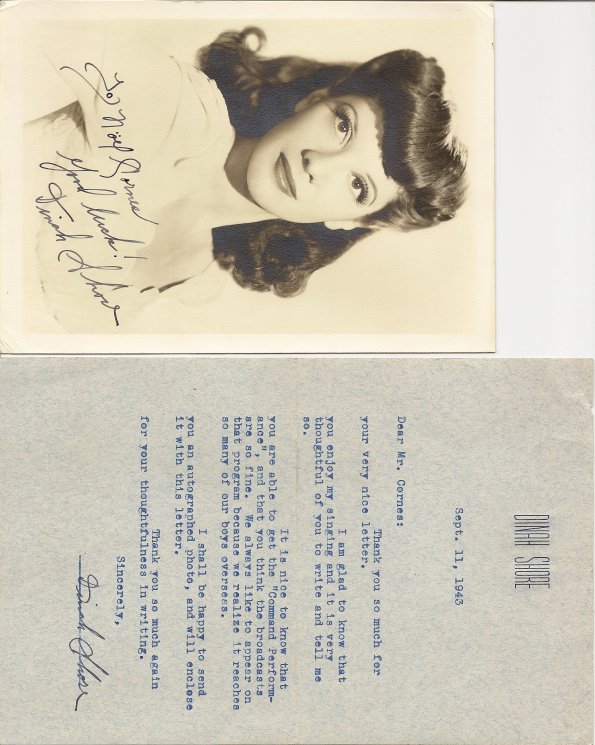 To Nöel Cornes
Good luck!
Dinah Shore
DINAH SHORE
Sept. 11, 1943
Dear Mr. Cornes:
Thank you so much for
your very nice letter.
I am glad to know that
you enjoy my singing and it is very
thoughtful of you to write and tell me
so.
It is nice to know that
you are able to get the "Command Perform-
ance", and that you think the broadcasts
are so fine. We always like to appear on
that program because we realize it reaches
so many of our boys overseas.
I shall be happy to send
you an autographed photo, and will enclose
it with this letter.
Thank you so much again
for your thoughtfulness in writing.
Sincerely,
Dinah Shore